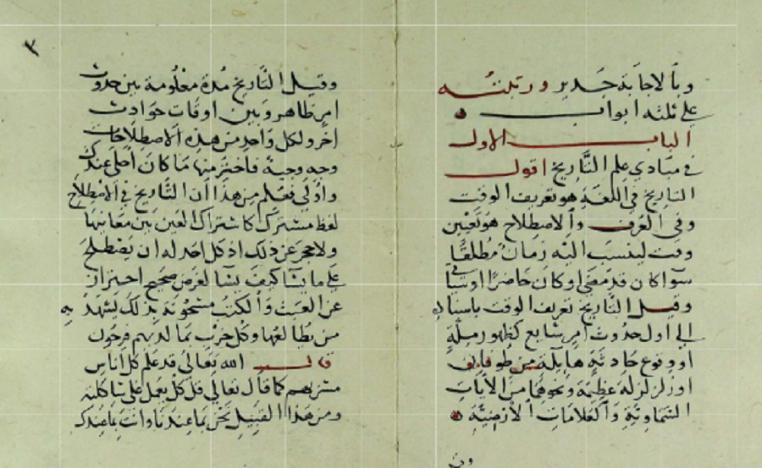 وبالاجابة جدير ورتبته
على ثلثه ابواب
الباب الاول
في مبادي علم التاريخ اقول
التاريخ في اللغة هو تعريف الوقت
وفي العرف والاصطلاح هو تعيين
وقت لينسب اليه زمان مطلقا
سوآ كان قد مضى او كان حاضرا او سيأتي
وقيل التاريخ تعريف الوقت باسناده
الى اول حدوث امر شايع كظهور ملة
او وقوع حادثة هايلة من طوفان
او زلزلة عظيمة ونحوها من الآيات
السماوية والعلامات الارضية
وقيل
٣
وقيل التاريخ مدة معلومة بين حدوث
امر ظاهر وبين اوقات حوادث
اخر ولكل واحد من هذه الاصطلاحات
وجه وجيه فاختر منها ما كان احلى عندك
واولى فعلم من هذا ان التاريخ في الاصطلاح
لفظ مشترك كاشتراك العين بين معانيها
ولا حجر عن ذلك اذ كل احد له ان يصطلح
على ما يشا كيف يشا لغرض صحيح احتراز
عن العبث والكتب مشحونة بذلك يشهد به
من يطالعها وكل حزب بما لديهم فرحون
قال الله تعالى قد علم كل اناس
مشربهم كما قال تعالى قل كل يعمل على شاكلته
ومن هذا القبيل نحن بما عندنا وانت بما عندك